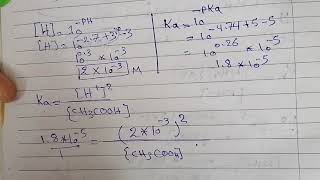 [H]=10^-PH
[H]=10^-2.7+3-3
10^0.3 * 10^-3
2 * 10^-3 M
Ka=10^-PKa
=10^-4.74+5-5
=10^0.26 * 10^-5
1.8 * 10^-5
Ka= [H+]^2 / [CH3COOH]
1.8*10^-5 / 1 = (2*10^-3)^2 / [CH3COOH]